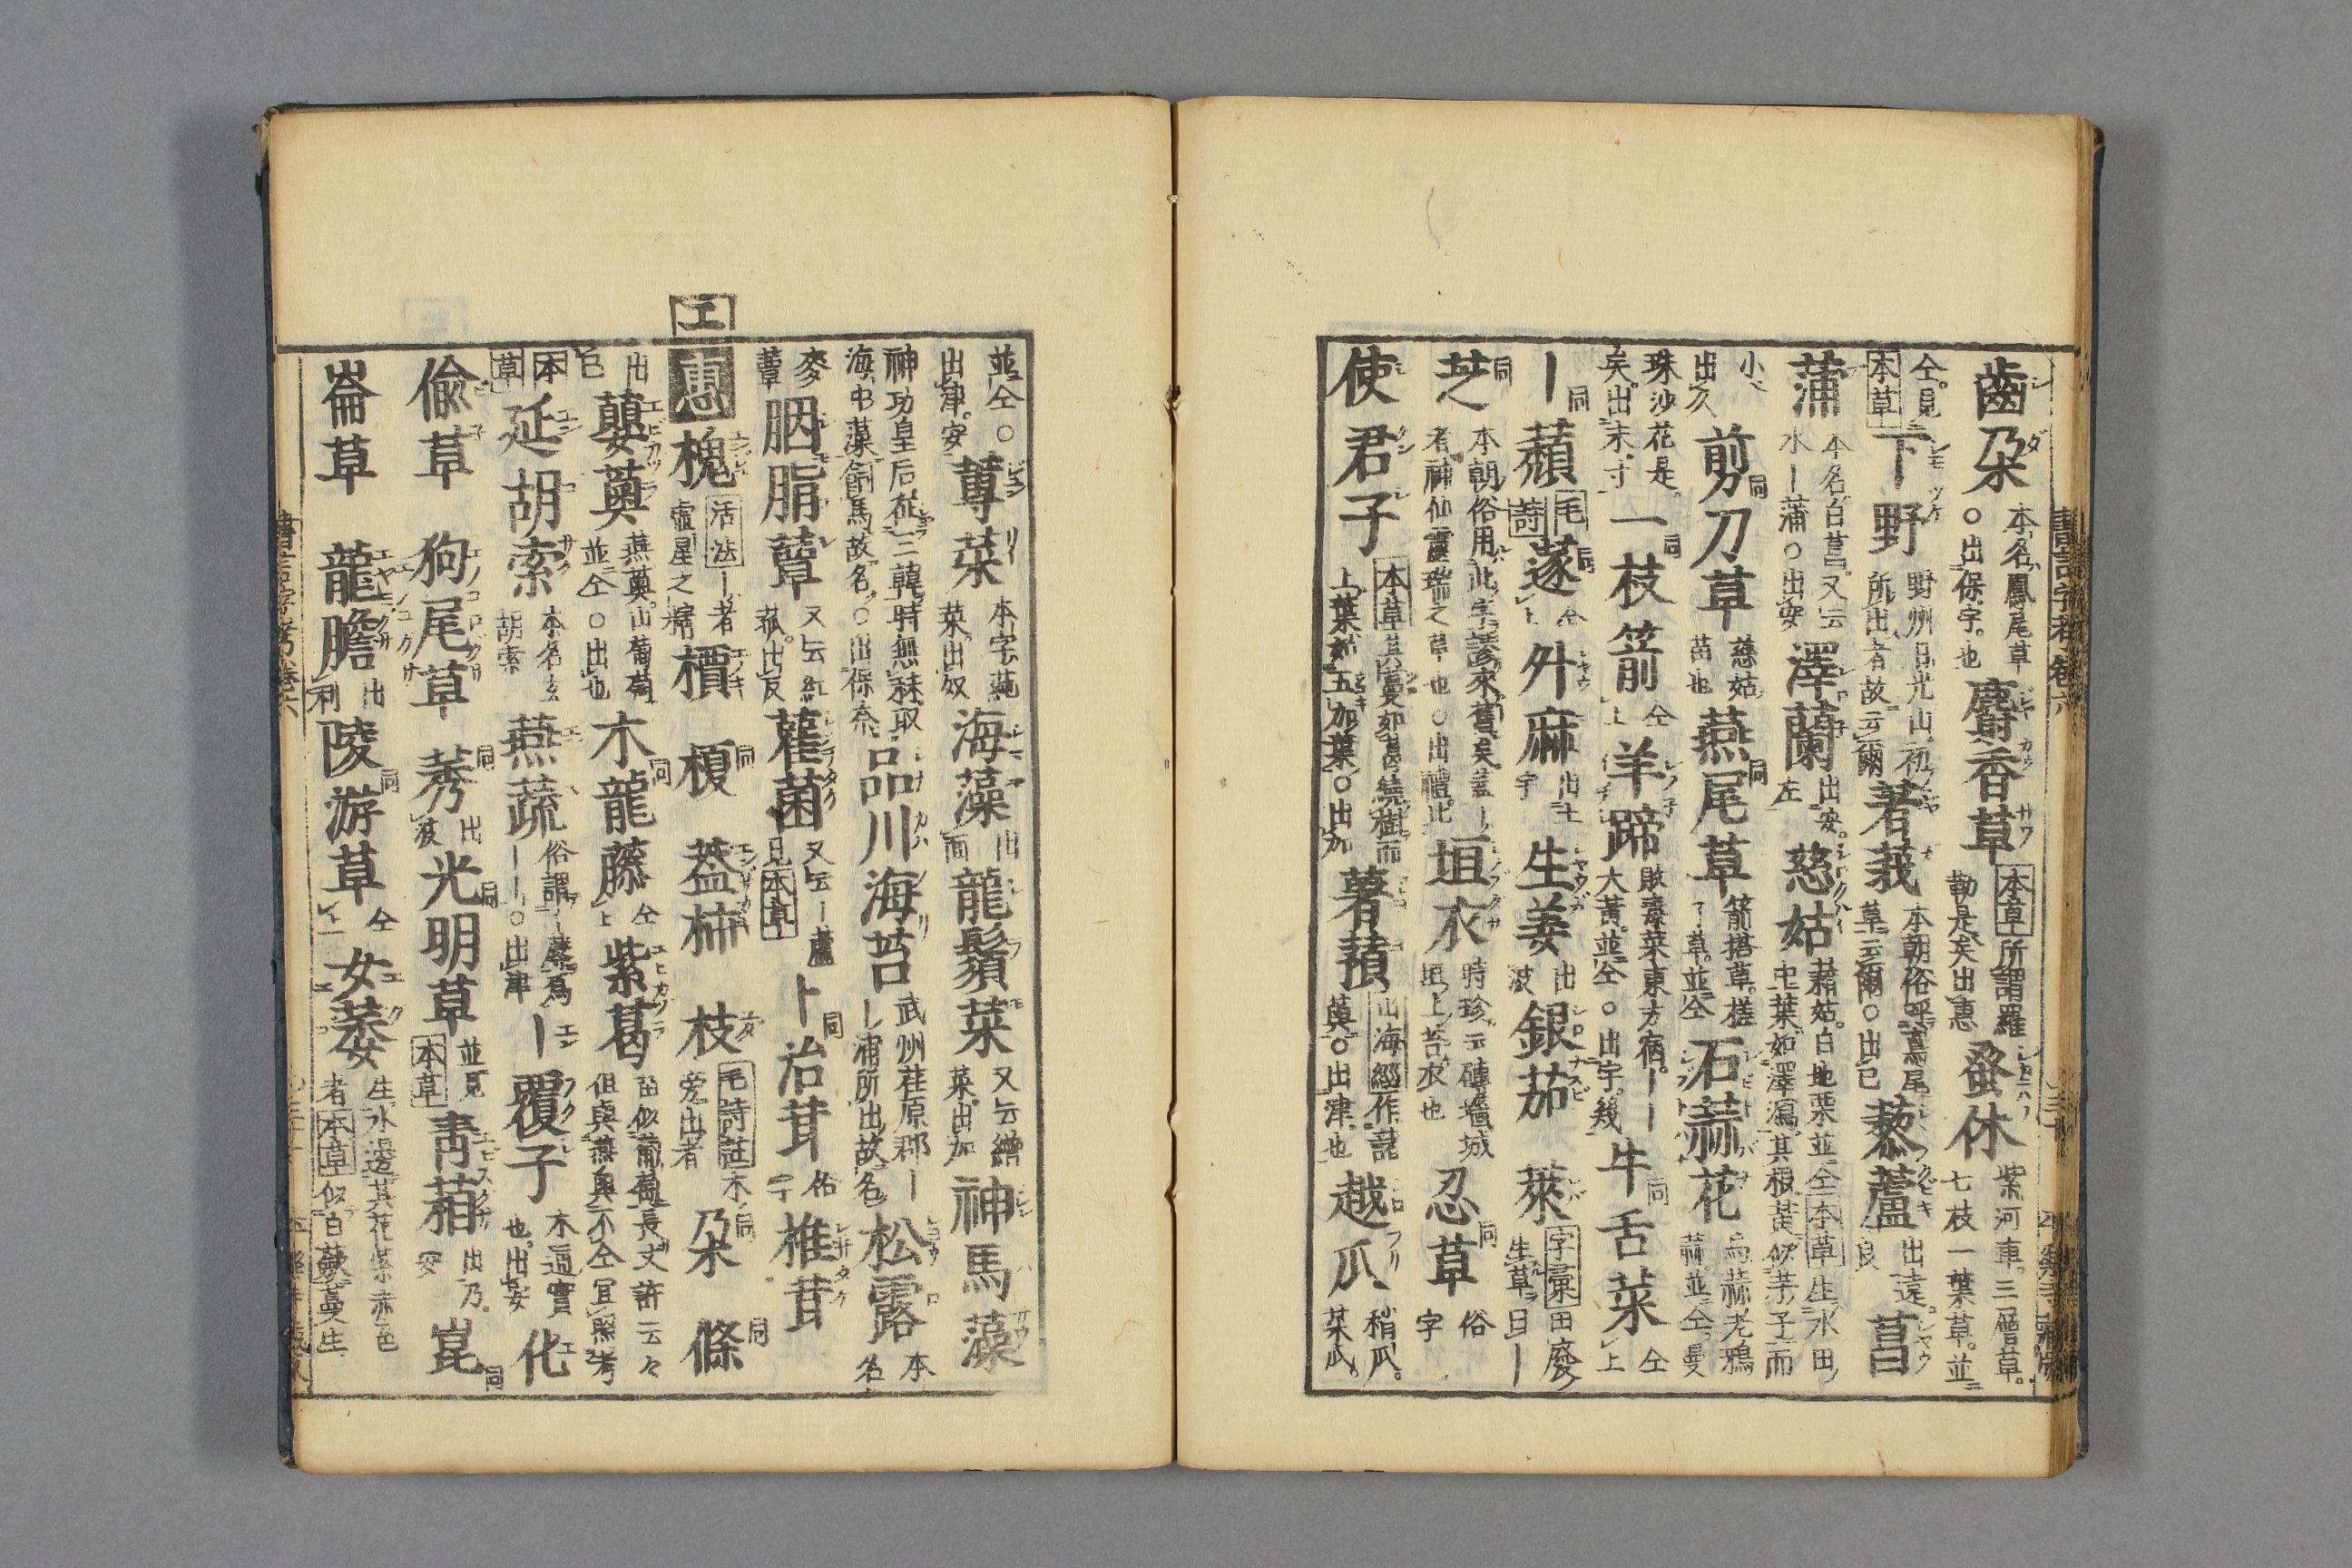 齒朶 本名鳳尾草○出保字也 麝香草 本草所謂羅勒是矣出惠 蚤休 紫河車三層草七枝一葉草並
仝見本草 下野 野州日光山初所出者故云爾 著莪 本朝俗呼鳶尾草云爾○出已 藜蘆 出遠良 菖
蒲 本名白菖又云水ー蒲○出安 澤蘭 出安左 慈姑 藉姑白地栗並仝本草生水田中葉如澤瀉其根黃似芋子而
小出久 剪刀草 慈姑苗也 燕尾草 箭搭草槎了草並仝 石蒜花 烏蒜老鴉蒜並仝曼
珠沙花是矣出末寸 一枝箭 仝上 羊蹄 敗毒菜東方宿ーー大黃並仝○出宇幾 牛舌菜 仝上
ー蘋 毛詩 蓫 仝上 外麻 出土字 生姜 出波 銀茄 萊 字彙田廢生草曰ー
芝 本朝俗用此字謬來舊矣蓋ー者神仙靈瑞之草也○出禮比 垣衣 時珍云磚墻城垣上苔衣也 忍草 俗字
使君子 本草其蔓如葛繞樹而上葉如五加葉○出加 薯蕷 山海經作藷藇○出津也 越瓜 稍瓜菜瓜
並仝○出津安 蓴菜 本字蒓菜出奴 海藻 出面 龍鬚菜 又云繒菜出加 神馬藻
神功皇后征三韓時無秣取海中藻飼馬故名○出保奈 品川海苔 武州荏原郡ー浦所出故名 松露 本名
麥蕈 胭脂蕈 又云紅菰出反 雚菌 又云ー蘆見本草 ト治茸 俗字 椎茸
エ
惠 槐 活法ー者虛星之精 檟 榎 蓋柹 枝 毛詩註木旁出者 朶 條
出 蘡薁 燕薁山葡萄並仝○出也 木龍藤 仝上 紫葛 苗似葡萄長丈許云々但與燕薁不仝宜照考
本草 延胡索 本名玄胡索 燕蔬 俗謂ー藜爲ーー○出津 ー覆子 木通實也出安 化
偸草 狗尾草 莠 出波 光明草 並見本草 靑葙 出乃安 崑
崙草 龍膽 出利 陵游草 仝上 女萎 生水邊其花紫赤色者本草似白蘞蔓生